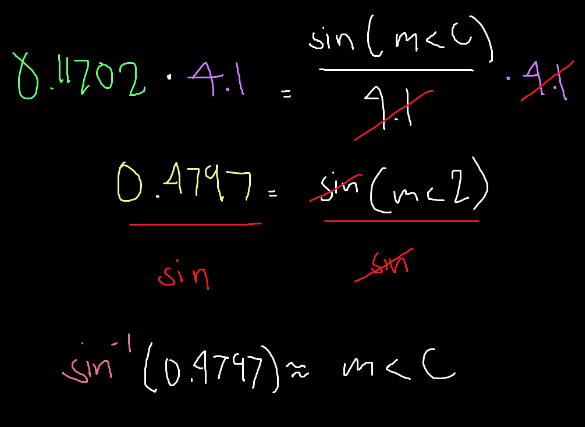 0.11702 · 4.1 = sin(m<C) / 4.1 · 4.1
0.4797 = sin(m<2)
sin sin
sin⁻¹(0.4797) ≈ m<C